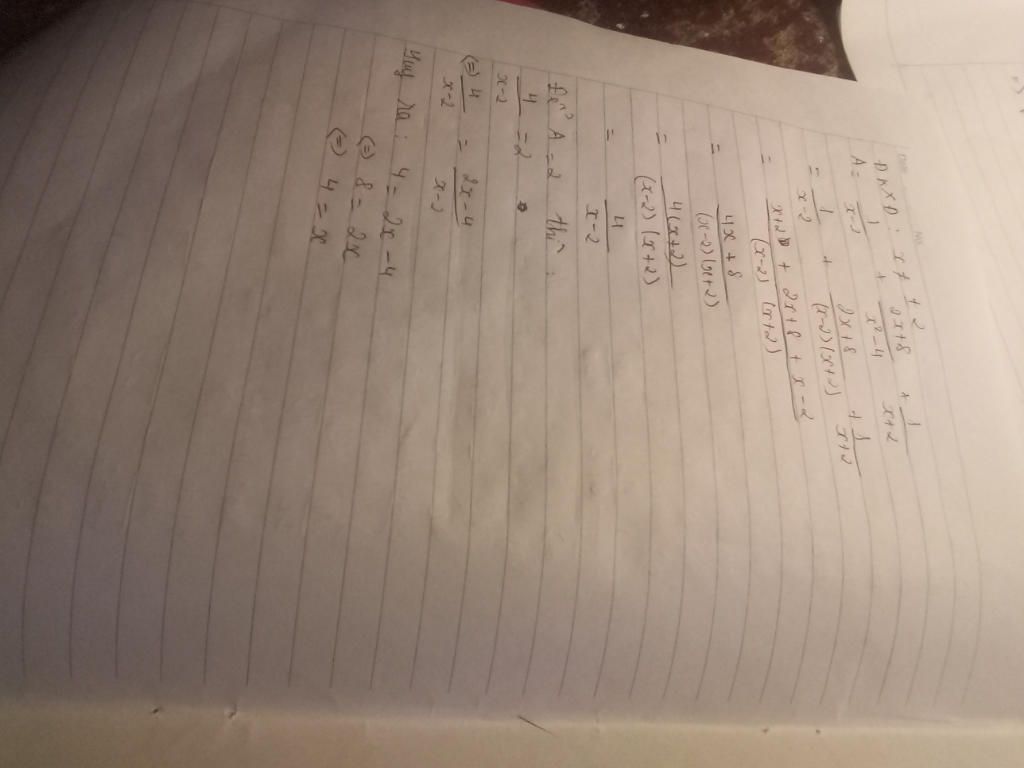 ĐKXĐ: x ≠ ± 2
A = 1/(x-2) + (2x+8)/(x²-4) + 1/(x+2)
= 1/(x-2) + (2x+8)/((x-2)(x+2)) + 1/(x+2)
= (x+2 + 2x+8 + x-2)/((x-2)(x+2))
= (4x+8)/((x-2)(x+2))
= 4(x+2)/((x-2)(x+2))
= 4/(x-2)
Để A = 2 thì:
4/(x-2) = 2
(=) 4/(x-2) = (2x-4)/(x-2)
4 = 2x-4
(=) 8 = 2x
(=) 4 = x